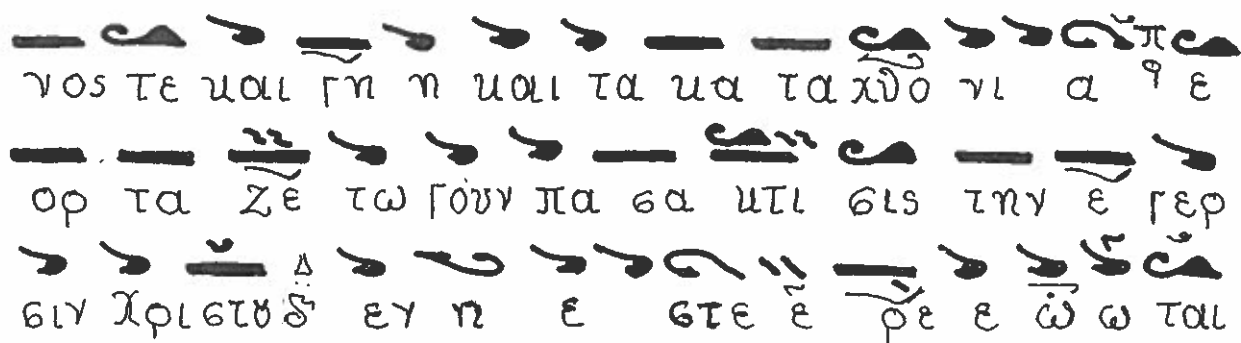 νος τε και γη η και τα κα τα χθο νι α π ε
ορ τα ζε τω γουν πα σα κτι σις την ε γερ
σιν Χρι στου Δ εν η ε στε ε ρε ε ω ω ται